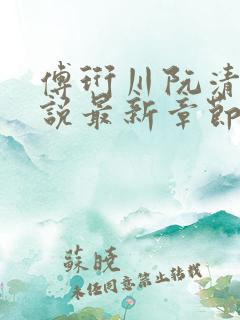 傅衍川阮清
说最新章节
苏晓
未经同意禁止转载